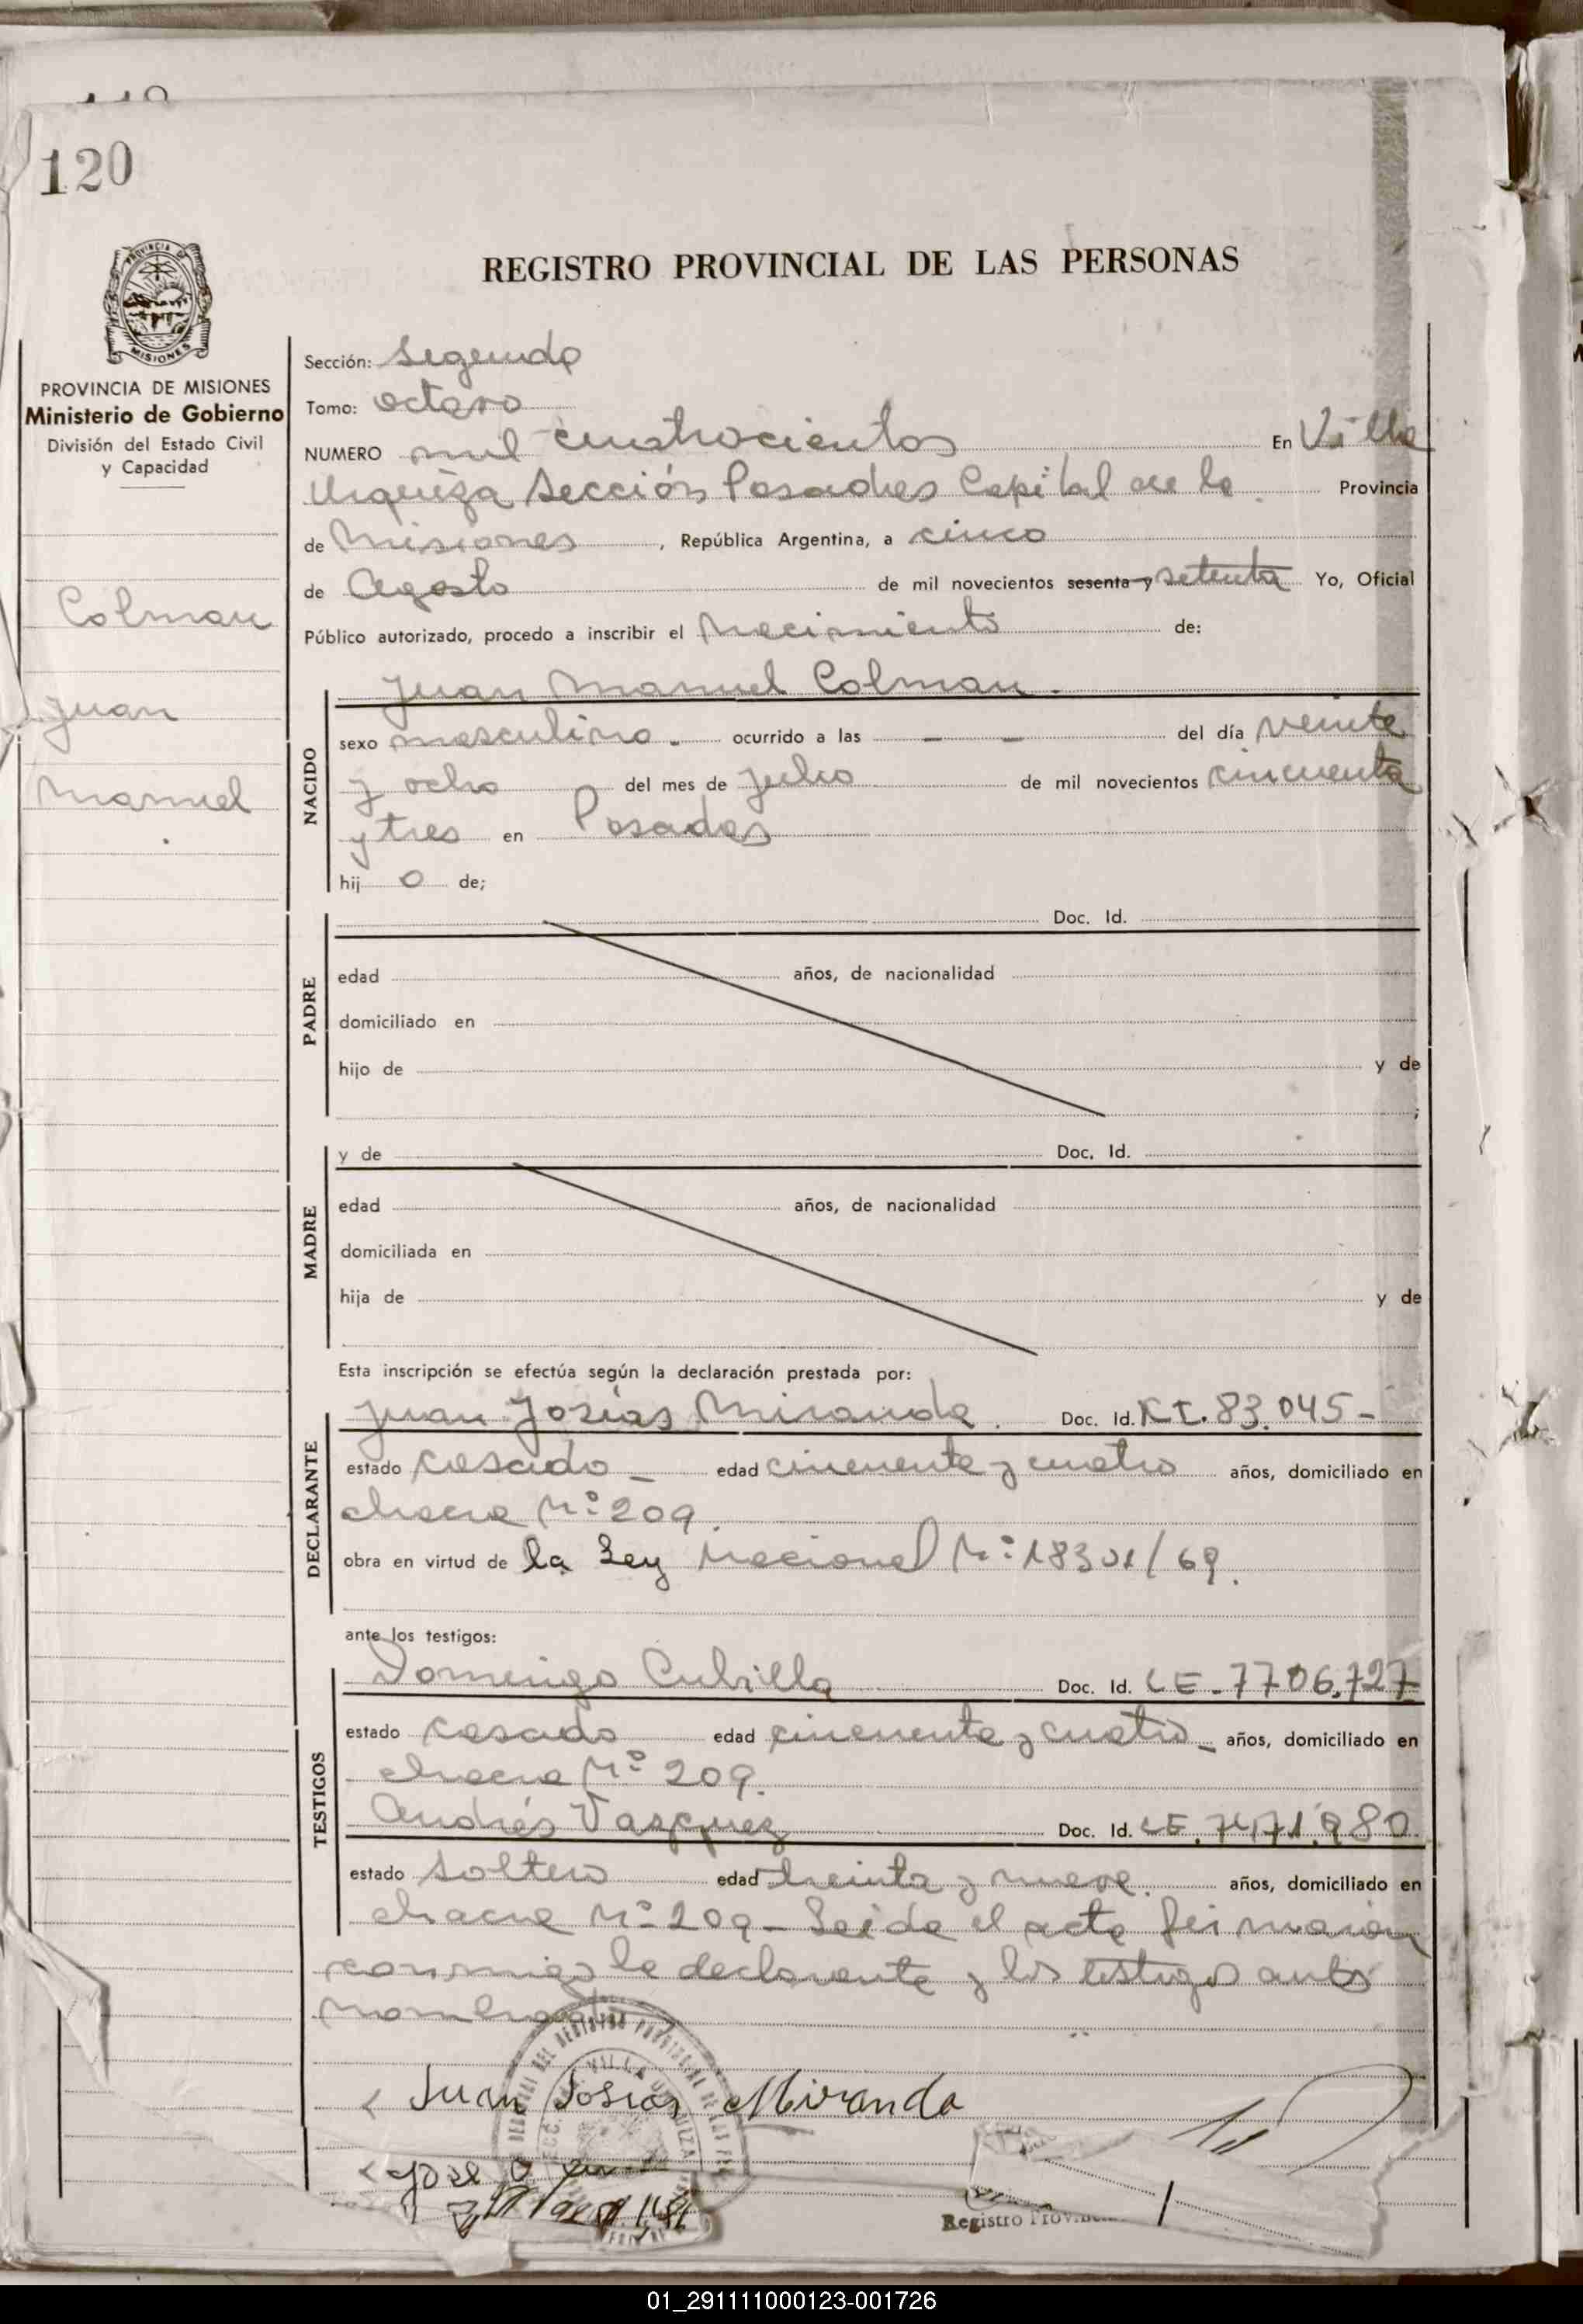 120
REGISTRO PROVINCIAL DE LAS PERSONAS
PROVINCIA DE MISIONES
Ministerio de Gobierno
División del Estado Civil
y Capacidad
Colman
Juan
Manuel
Sección: Segunda
Tomo: octavo
NUMERO mil cuatrocientos En Villa
Urquiza Sección Posadas Capital de la Provincia
de Misiones, República Argentina, a cinco
de Agosto de mil novecientos sesenta y setenta Yo, Oficial
Público autorizado, procedo a inscribir el Nacimiento de:
Juan Manuel Colman.
NACIDO
sexo masculino. ocurrido a las — — del día veinte
y ocho del mes de Julio de mil novecientos cincuenta
y tres en Posadas
hij o de;
PADRE
Doc. Id.
edad años, de nacionalidad
domiciliado en
hijo de y de
;
MADRE
y de Doc. Id.
edad años, de nacionalidad
domiciliada en
hija de y de
Esta inscripción se efectúa según la declaración prestada por:
DECLARANTE
Juan Josías Miranda. Doc. Id. 83.045-
estado casado - edad cincuenta y cuatro años, domiciliado en
chacra Nº 209.
obra en virtud de la Ley Nacional Nº 18301/69.
ante los testigos:
TESTIGOS
Domingo Cubilla Doc. Id. LE. 7706.727
estado casado edad cincuenta y cuatro - años, domiciliado en
chacra Nº 209.
Andrés Vazquez Doc. Id. LE. 7471.980
estado soltero edad treinta y nueve. años, domiciliado en
chacra Nº 209 - Leida el acta firmaron
conmigo la declarante y los testigos antes
nombrados
Juan Josias Miranda
Jose
Registro
01_291111000123-001726